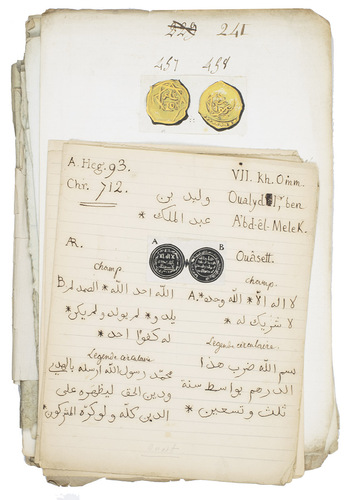 229 241
457 458
A. Heg. 93. VII. Kh. Omm.
Chr. 712. وليد بن Oualyd Iᵉʳ ben
عبد الملك * A'bd-êl-Melek.
A B
AR. Ouâsett.
champ. champ.
B الله احد الله * الصمد لم A. لا اله الا * الله وحده *
يلد و * لم يولد ولم يكن * لا شريك له *
له كفوا احد * Légende circulaire.
Légende circulaire بسم الله ضرب هذا
محمد رسول الله ارسله بالهدى الدرهم بواسط سنة
ودين الحق ليظهره على ثلث وتسعين *
الدين كله ولو كره المشركون *